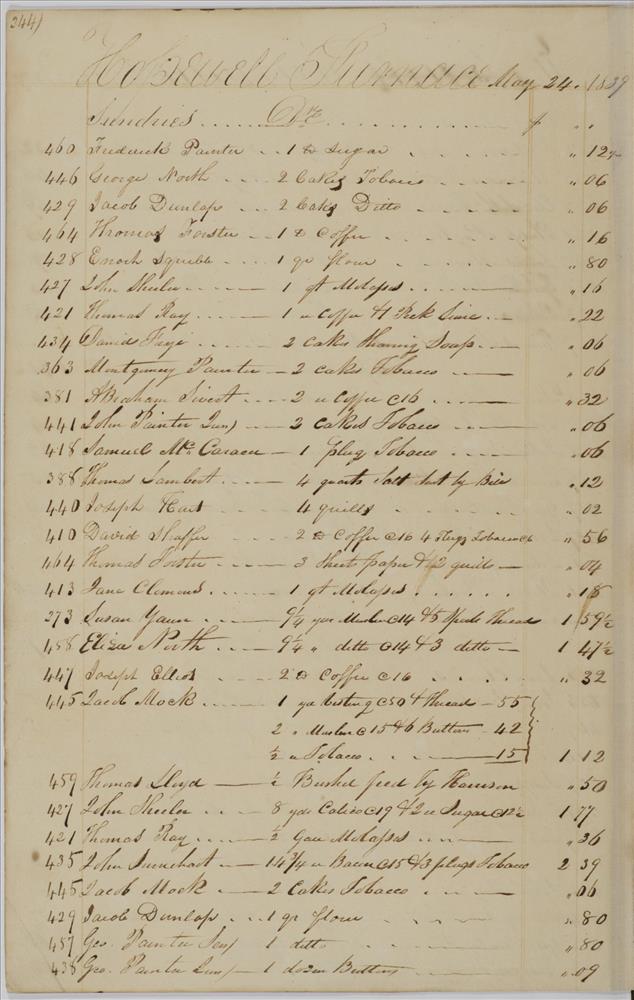 244)
Hopewell Furnace May 24. 1839
Sundries Drs $ " "
460 Frederick Painter 1 lb Sugar " 12½
446 George North 2 Cakes Tobacco " 06
429 Jacob Dunlap 2 Cakes Ditto " 06
464 Thomas Forster 1 lb Coffee " 16
428 Enoch Squibb 1 qr flour " 80
427 John Sheeler 1 qt Molases " 16
421 Thomas Ray 1 " Coffee & 1 Peck Lime " 22
434 David 2 cakes Shaving Soap " 06
363 Montgomery Painter 2 cakes Tobacco " 06
381 Abraham Sivert 2 " Coffee @ 16 " 32
441 John Painter Junr 2 cakes Tobacco " 06
418 Samuel Mc. Caraen 1 plug Tobacco " 06
388 Thomas Lambert 4 quarts Salt by Bill " 12
440 Joseph Hart 4 quills " 02
410 David Shaffer 2 lb Coffee @ 16 4 Plugs Tobacco @ 6 " 56
464 Thomas Forster 3 Sheets paper & 2 quills " 04
413 Jane Clemens 1 qt Molases " 18
273 Susan 9¼ yds Muslin @ 14 & 3 Spools Thread 1 59½
458 Eliza North 9¼ " ditto @ 14 & 3 ditto 1 47½
447 Joseph Elliot 2 lb Coffee @ 16 " 32
445 Jacob Mock 1 yd Vesting @ 50 & Thread - 55
2 " Muslin @ 15 & 6 Buttons - 42
½ " Tobacco 15 1 12
459 Thomas Lloyd ½ Bushel feed by Harrison " 50
427 John Sheeler 8 yds Calico @ 19 & 2 " Sugar @ 12½ 1 77
421 Thomas Ray ½ Gall Molases " 36
435 John 14¾ " Bacon @ 15 & 3 plugs Tobacco 2 39
445 Jacob Mock 2 Cakes Tobacco " 06
429 Jacob Dunlap 1 qr flour " 80
457 Geo. Painter Senr 1 ditto " 80
438 Geo. Painter Junr 1 dozen Buttons " 09